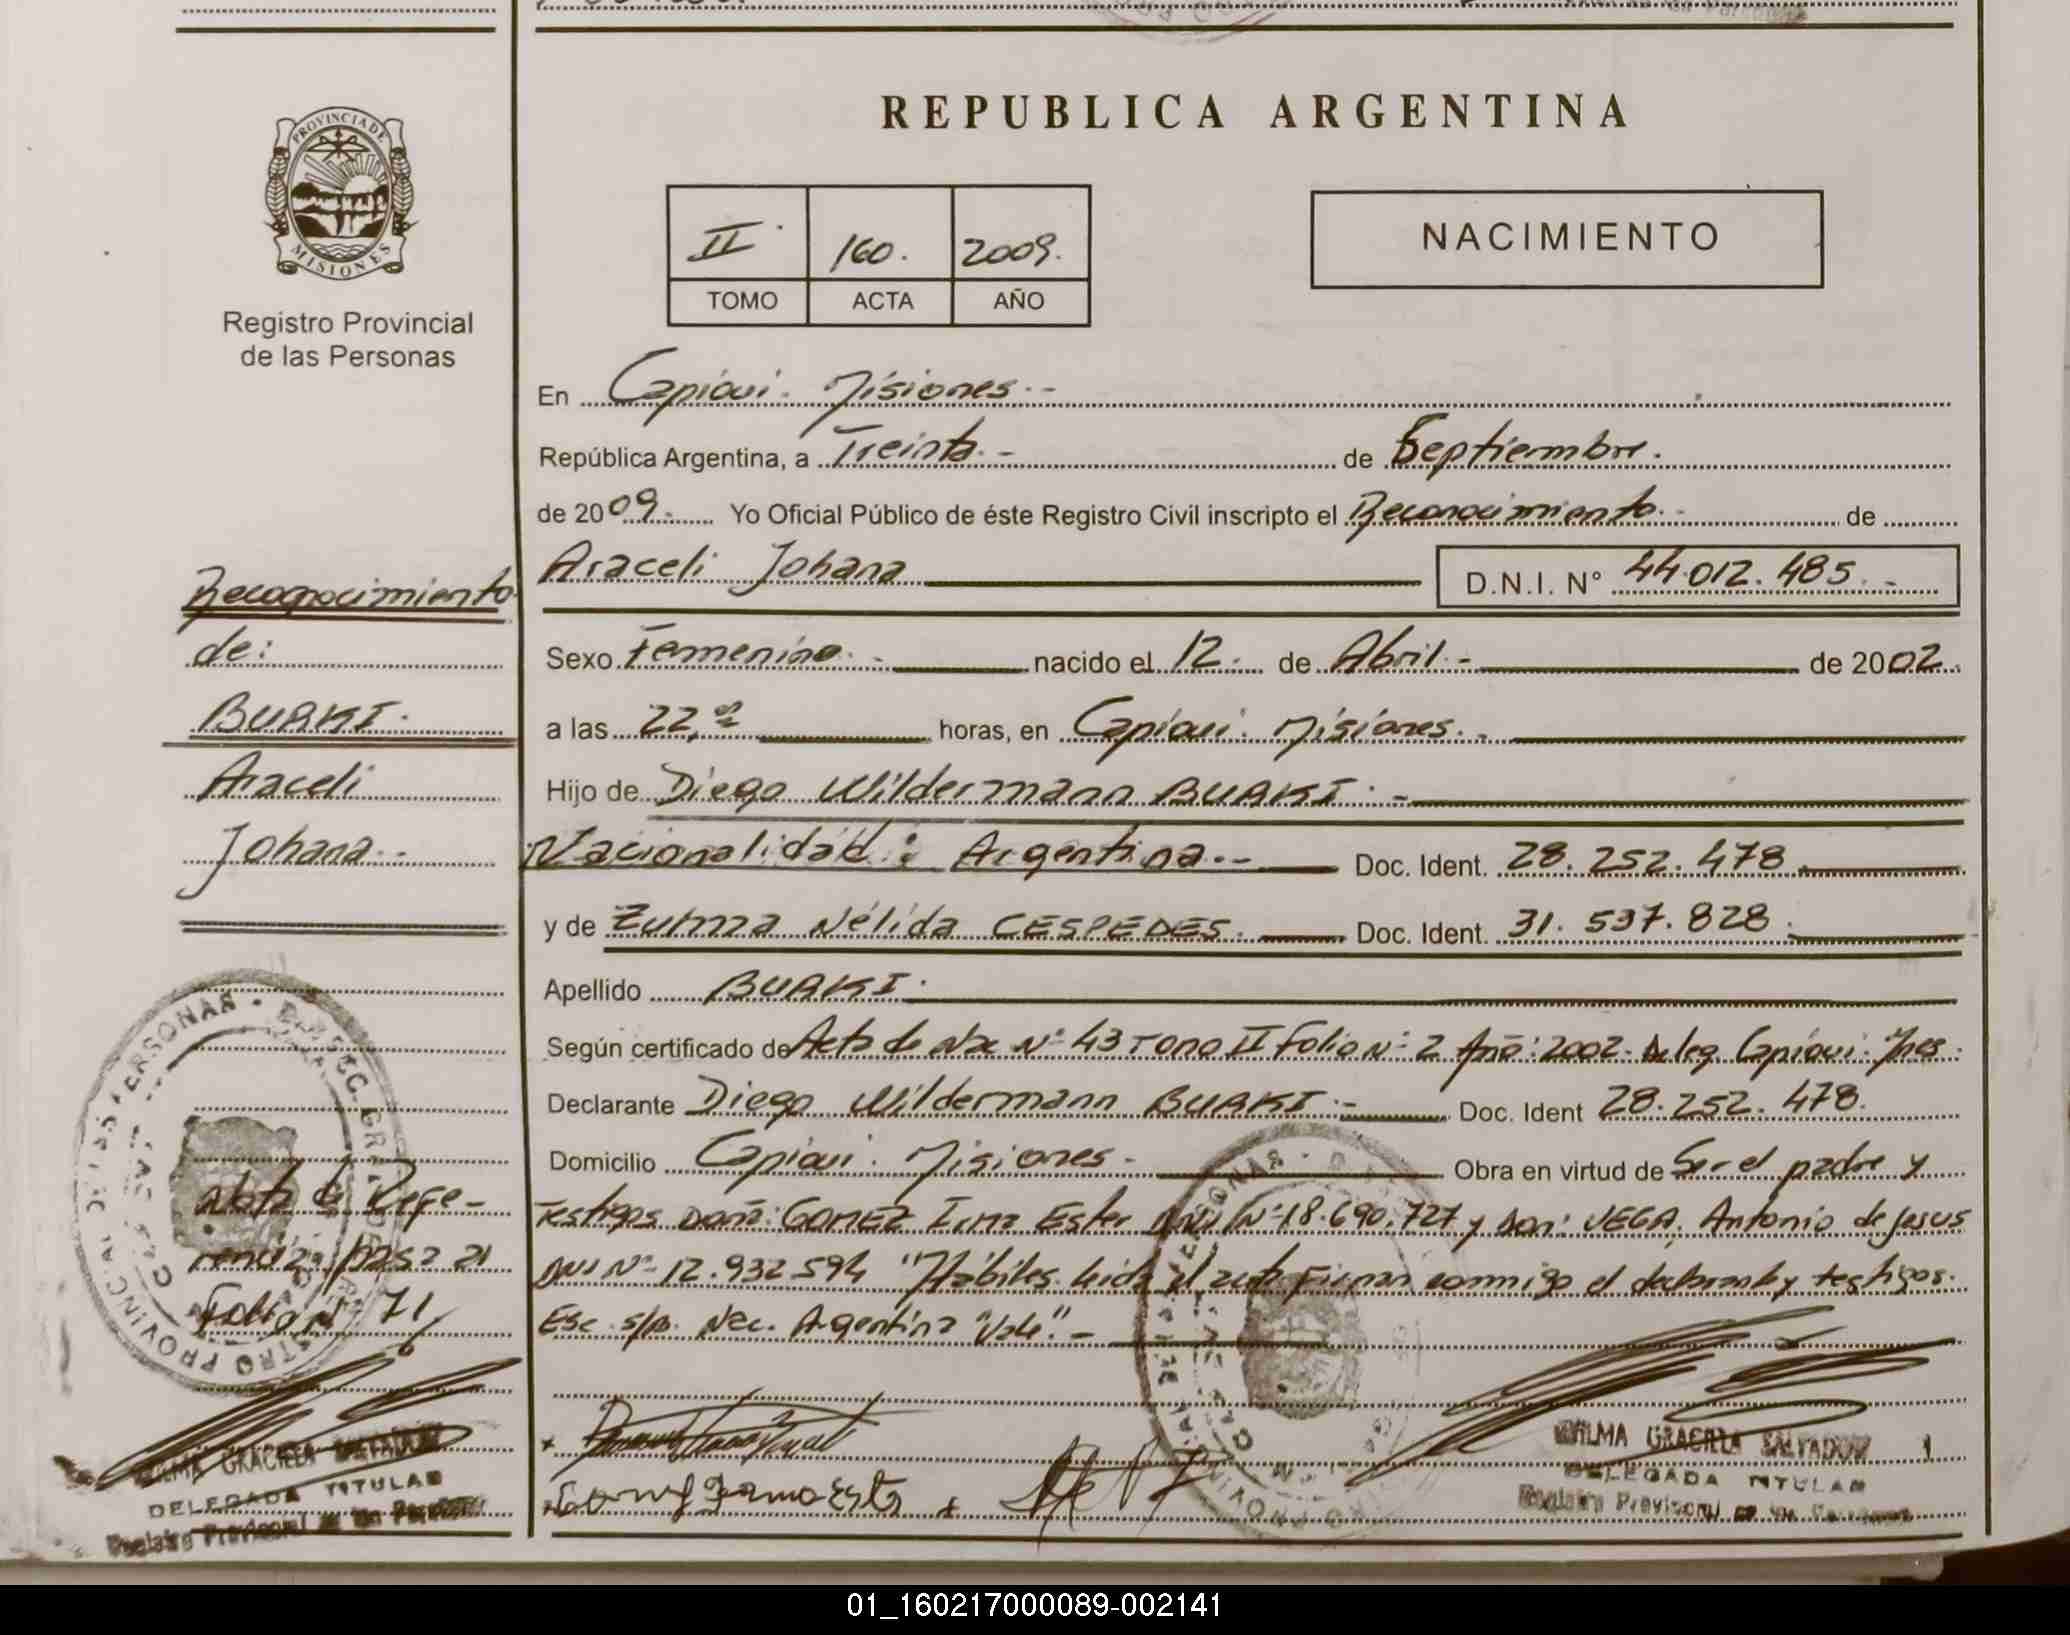 REPUBLICA ARGENTINA
PROVINCIA DE
MISIONES
Registro Provincial
de las Personas
II 160. 2009.
TOMO ACTA AÑO
NACIMIENTO
En Capioui. Misiones.-
República Argentina, a Treinta.- de Septiembre.
de 2009.- Yo Oficial Público de éste Registro Civil inscripto el Reconocimiento.- de
Araceli Johana D.N.I. N° 44.012.485.-
Sexo Femenino.- nacido el 12. de Abril.- de 2002.
a las 22, horas, en Capioui. Misiones.-
Hijo de Diego Wildermann BURKI.-
Nacionalidad: Argentina.- Doc. Ident. 28.252.478
y de Zulma Nélida CESPEDES. Doc. Ident. 31.537.828.
Apellido BURKI.
Según certificado de Acta de Nac N° 43 Tomo II Folio N° 2 Año: 2002. Deleg Capioui. Mnes.
Declarante Diego Wildermann BURKI.- Doc. Ident 28.252.478.
Domicilio Capioui. Misiones- Obra en virtud de Ser el padre y
Testigos Doña: GOMEZ Irma Ester DNI N° 18.690.727 y Don: VEGA. Antonio de Jesus
DNI N° 12.932.594 "Hábiles. Leida el acta Firman conmigo el declarante y testigos.
Esc. s/p. Nac. Argentina "Vale".-
Reconocimiento
de:
BURKI.
Araceli
Johana.-
Nota de Refe-
rencia pasa al
Folio N° 71
WILMA GRACIELA SALVADOR
DELEGADA TITULAR
Registro Provincial de las Personas
Gomez Irma Ester
WILMA GRACIELA SALVADOR
DELEGADA TITULAR
Registro Provincial de las Personas
01_160217000089-002141